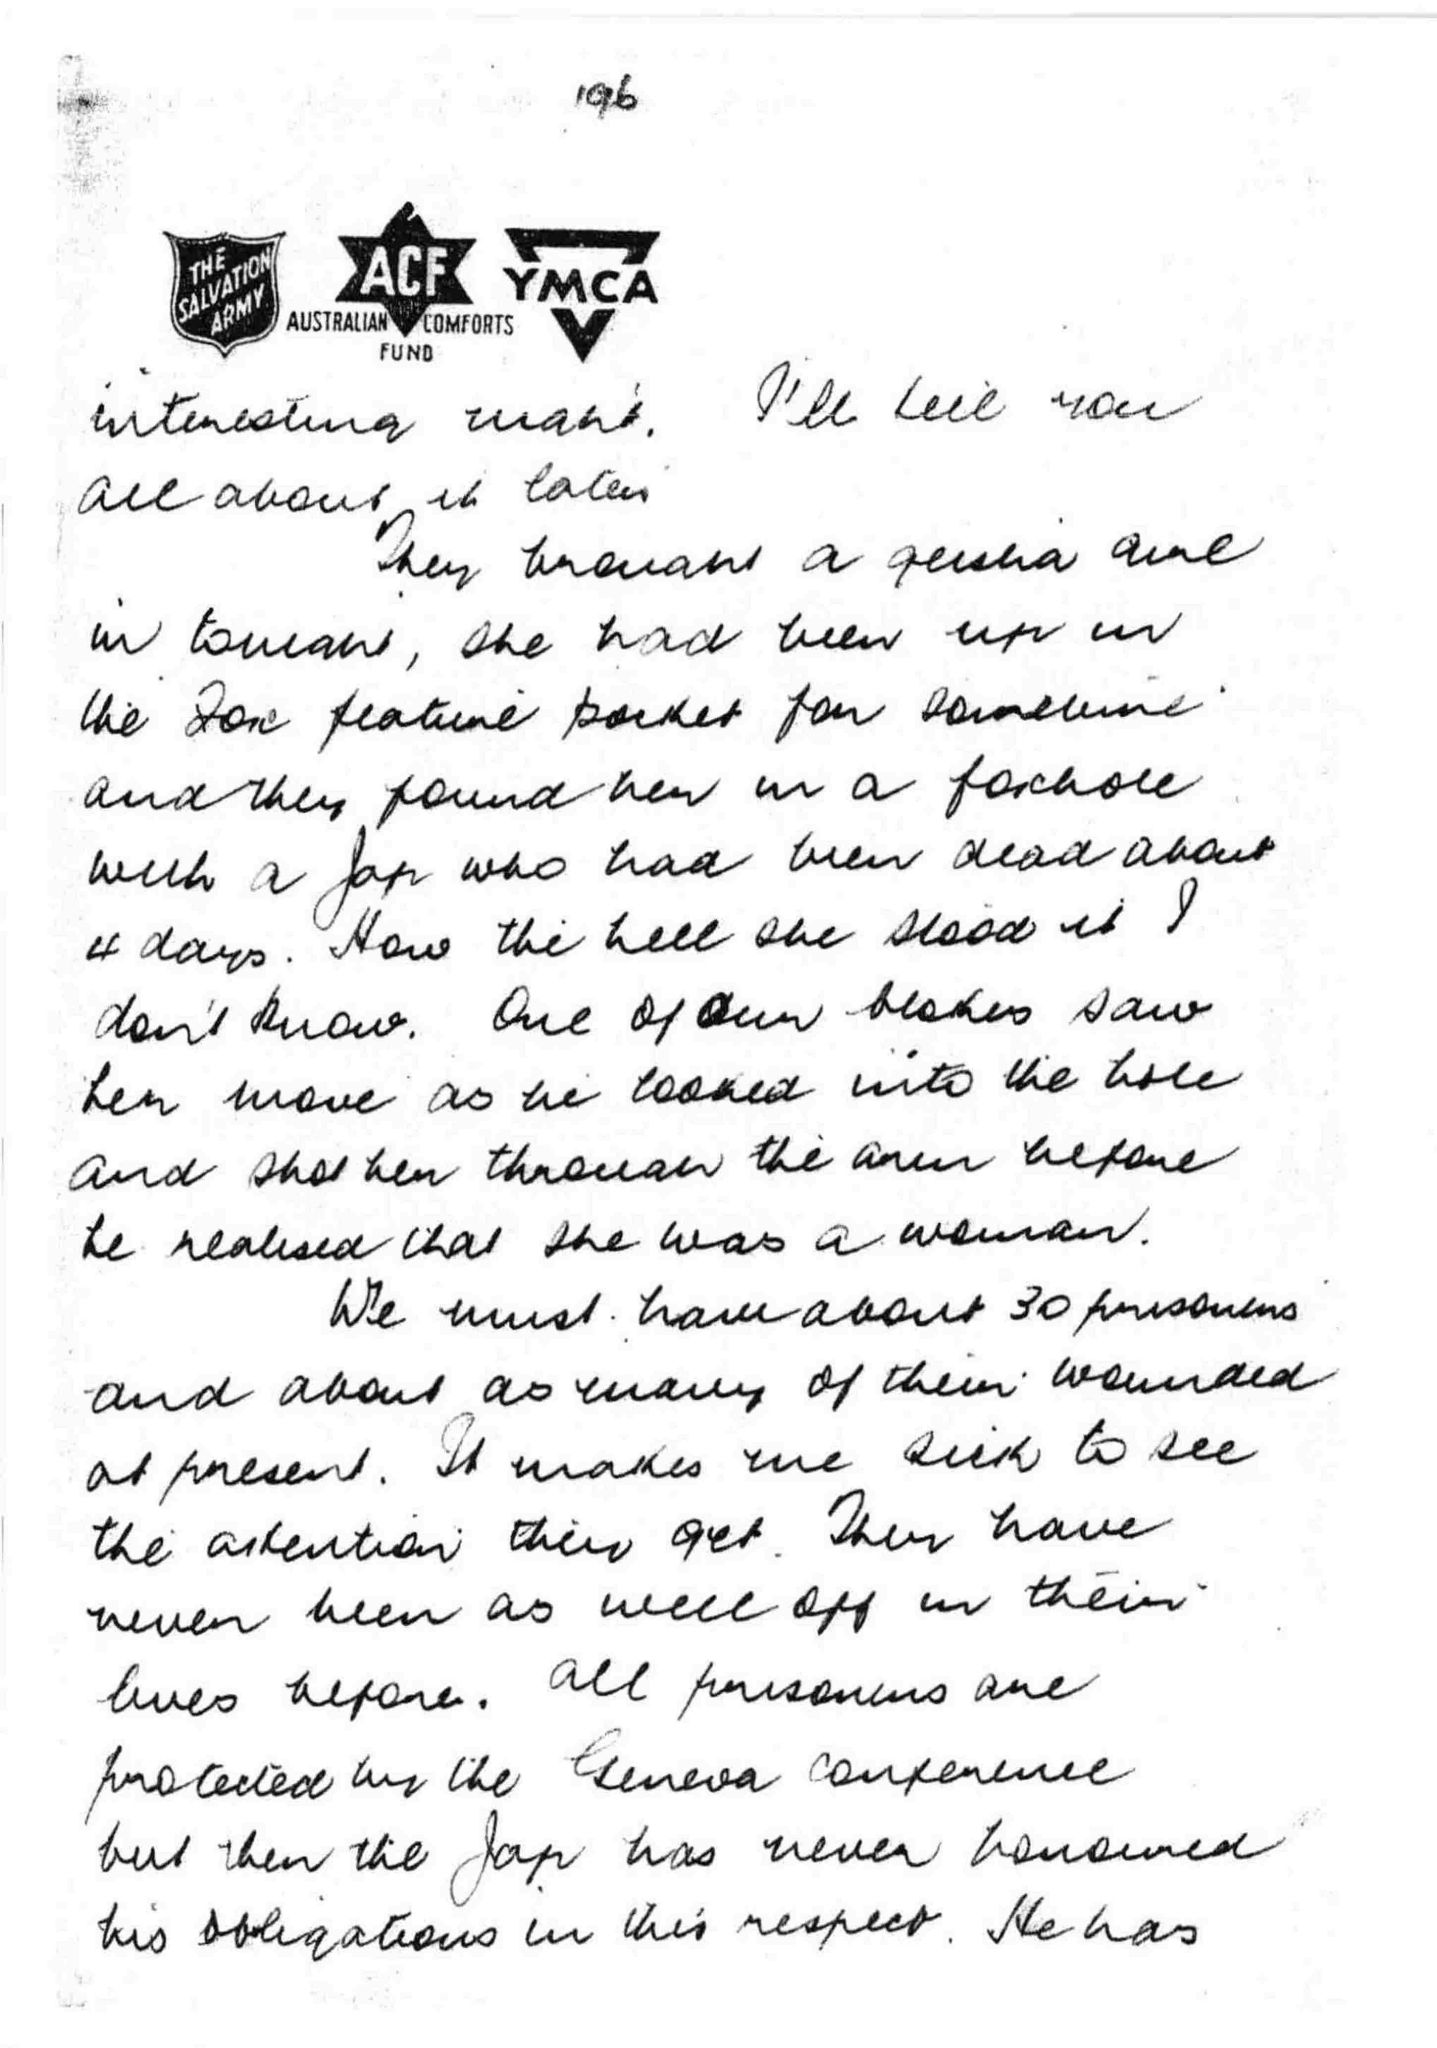 196
THE
SALVATION
ARMY
ACF
AUSTRALIAN COMFORTS
FUND
YMCA
interesting night. I'll tell you
all about it later
They brought a geisha girl
in tonight, she had been up in
the Fox feature pocket for sometime
and they found her in a foxhole
with a Jap who had been dead about
4 days. How the hell she stood it I
don't know. One of our blokes saw
her move as he looked into the hole
and shot her through the arm before
he realised that she was a woman.
We must have about 30 prisoners
and about as many of their wounded
at present. It makes me sick to see
the attention they get. They have
never been as well off in their
lives before. All prisoners are
protected by the Geneva Conference
but then the Jap has never honoured
his obligations in this respect. He has